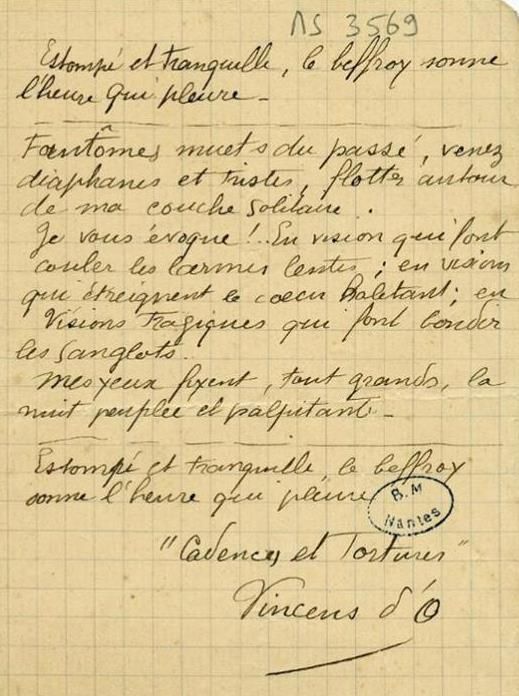 MS 3569
Estompé et tranquille, le beffroy sonne
l'heure qui pleure -
Fantômes muets du passé, venez
diaphanes et tristes, flotter autour
de ma couche solitaire.
Je vous évoque !.. En vision qui font
couler les larmes lentes ; en visions
qui étreignent le coeur haletant ; en
visions tragiques qui font bondir
les sanglots..
Mes yeux fixent, tout grands, la
nuit peuplée et palpitante -
Estompé et tranquille, le beffroy
sonne l'heure qui pleure
B.M
Nantes
"Cadences et Tortures"
Vincens d'Ó